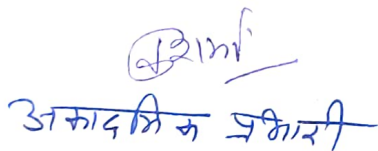 अकादमिक प्रभारी